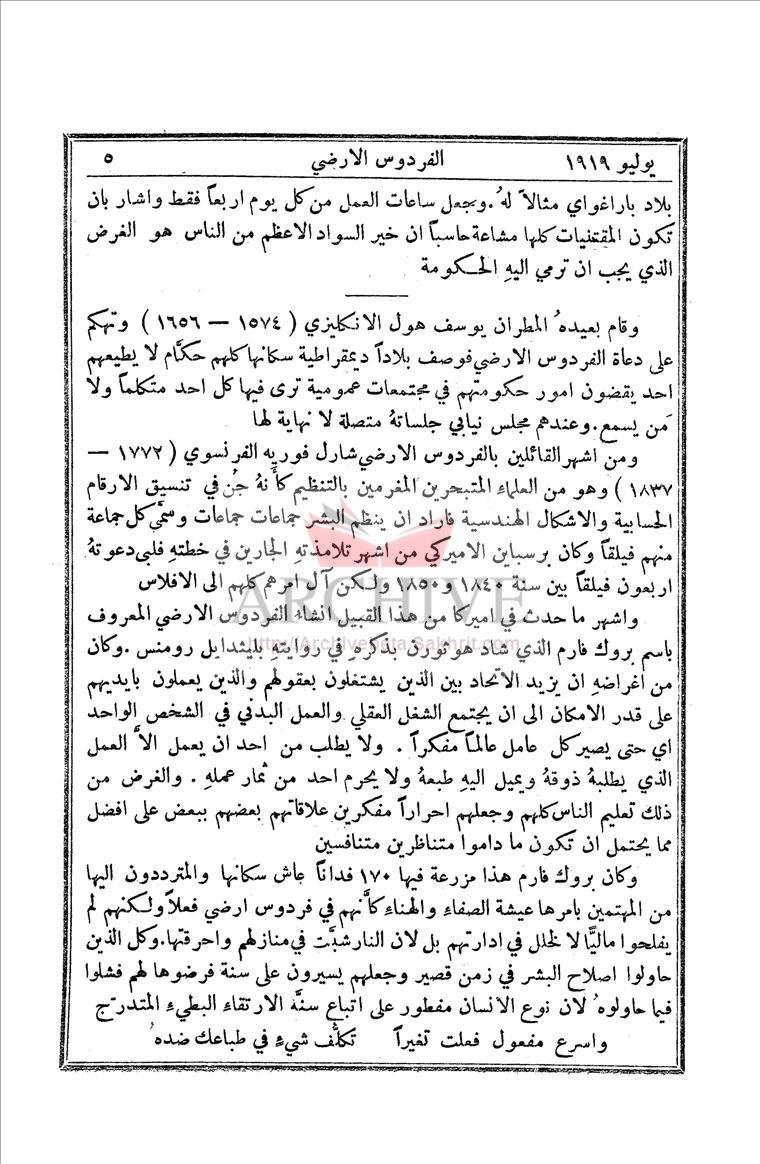 يوليو ١٩١٩ الفردوس الارضي ٥
بلاد باراغواي مثالاً لهُ. وجعل ساعات العمل من كل يوم اربعاً فقط واشار بان
تكون المقتنيات كلها مشاعة حاسباً ان خير السواد الاعظم من الناس هو الغرض
الذي يجب ان ترمي اليهِ الحكومة
وقام بعيدهُ المطران يوسف هول الانكليزي ( ١٥٧٤ — ١٦٥٦ ) وتهكم
على دعاة الفردوس الارضي فوصف بلاداً ديمقراطية سكانها كلهم حكّام لا يطيعهم
احد يقضون امور حكومتهم في مجتمعات عمومية ترى فيها كل احد متكلماً ولا
مَن يسمع. وعندهم مجلس نيابي جلساتهُ متصلة لا نهاية لها
ومن اشهر القائلين بالفردوس الارضي شارل فوريه الفرنسوي ( ١٧٧٢ —
١٨٣٧ ) وهو من العلماء المتبحرين المغرمين بالتنظيم كأنهُ جُن في تنسيق الارقام
الحسابية والاشكال الهندسية فاراد ان ينظم البشر جماعات جماعات وسمَّى كل جماعة
منهم فيلقاً وكان برسباين الاميركي من اشهر تلامذتهِ الجارين في خطتهِ فلبى دعوتهُ
اربعون فيلقاً بين سنة ١٨٤٠ و١٨٥٠ ولكن آل امرهم كلهم الى الافلاس
واشهر ما حدث في اميركا من هذا القبيل انشاء الفردوس الارضي المعروف
باسم بروك فارم الذي شاد هوثورن بذكرهِ في روايتهِ بليثدايل رومنس. وكان
من أغراضهِ ان يزيد الاتحاد بين الذين يشتغلون بعقولهم والذين يعملون بايديهم
على قدر الامكان الى ان يجتمع الشغل العقلي والعمل البدني في الشخص الواحد
اي حتى يصير كل عامل عالماً مفكراً. ولا يطلب من احد ان يعمل الاَّ العمل
الذي يطلبهُ ذوقهُ ويميل اليهِ طبعهُ ولا يحرم احد من ثمار عملهِ. والغرض من
ذلك تعليم الناس كلهم وجعلهم احراراً مفكرين علاقاتهم بعضهم ببعض على افضل
مما يحتمل ان تكون ما داموا متناظرين متنافسين
وكان بروك فارم هذا مزرعة فيها ١٧٠ فداناً عاش سكانها والمترددون اليها
من المهتمين بامرها عيشة الصفاء والهناء كأنَّهم في فردوس ارضي فعلاً ولكنهم لم
يفلحوا ماليًّا لا لخلل في ادارتهم بل لان النار شبَّت في منازلهم واحرقتها. وكل الذين
حاولوا اصلاح البشر في زمن قصير وجعلهم يسيرون على سنة فرضوها لهم فشلوا
فيما حاولوهُ لان نوع الانسان مفطور على اتباع سنَّة الارتقاء البطيء المتدرّج
واسرع مفعول فعلت تغيراً تكلُّف شيءٍ في طباعك ضدهُ
ARCHIVE
http://Archivebeta.Sakhrit.com